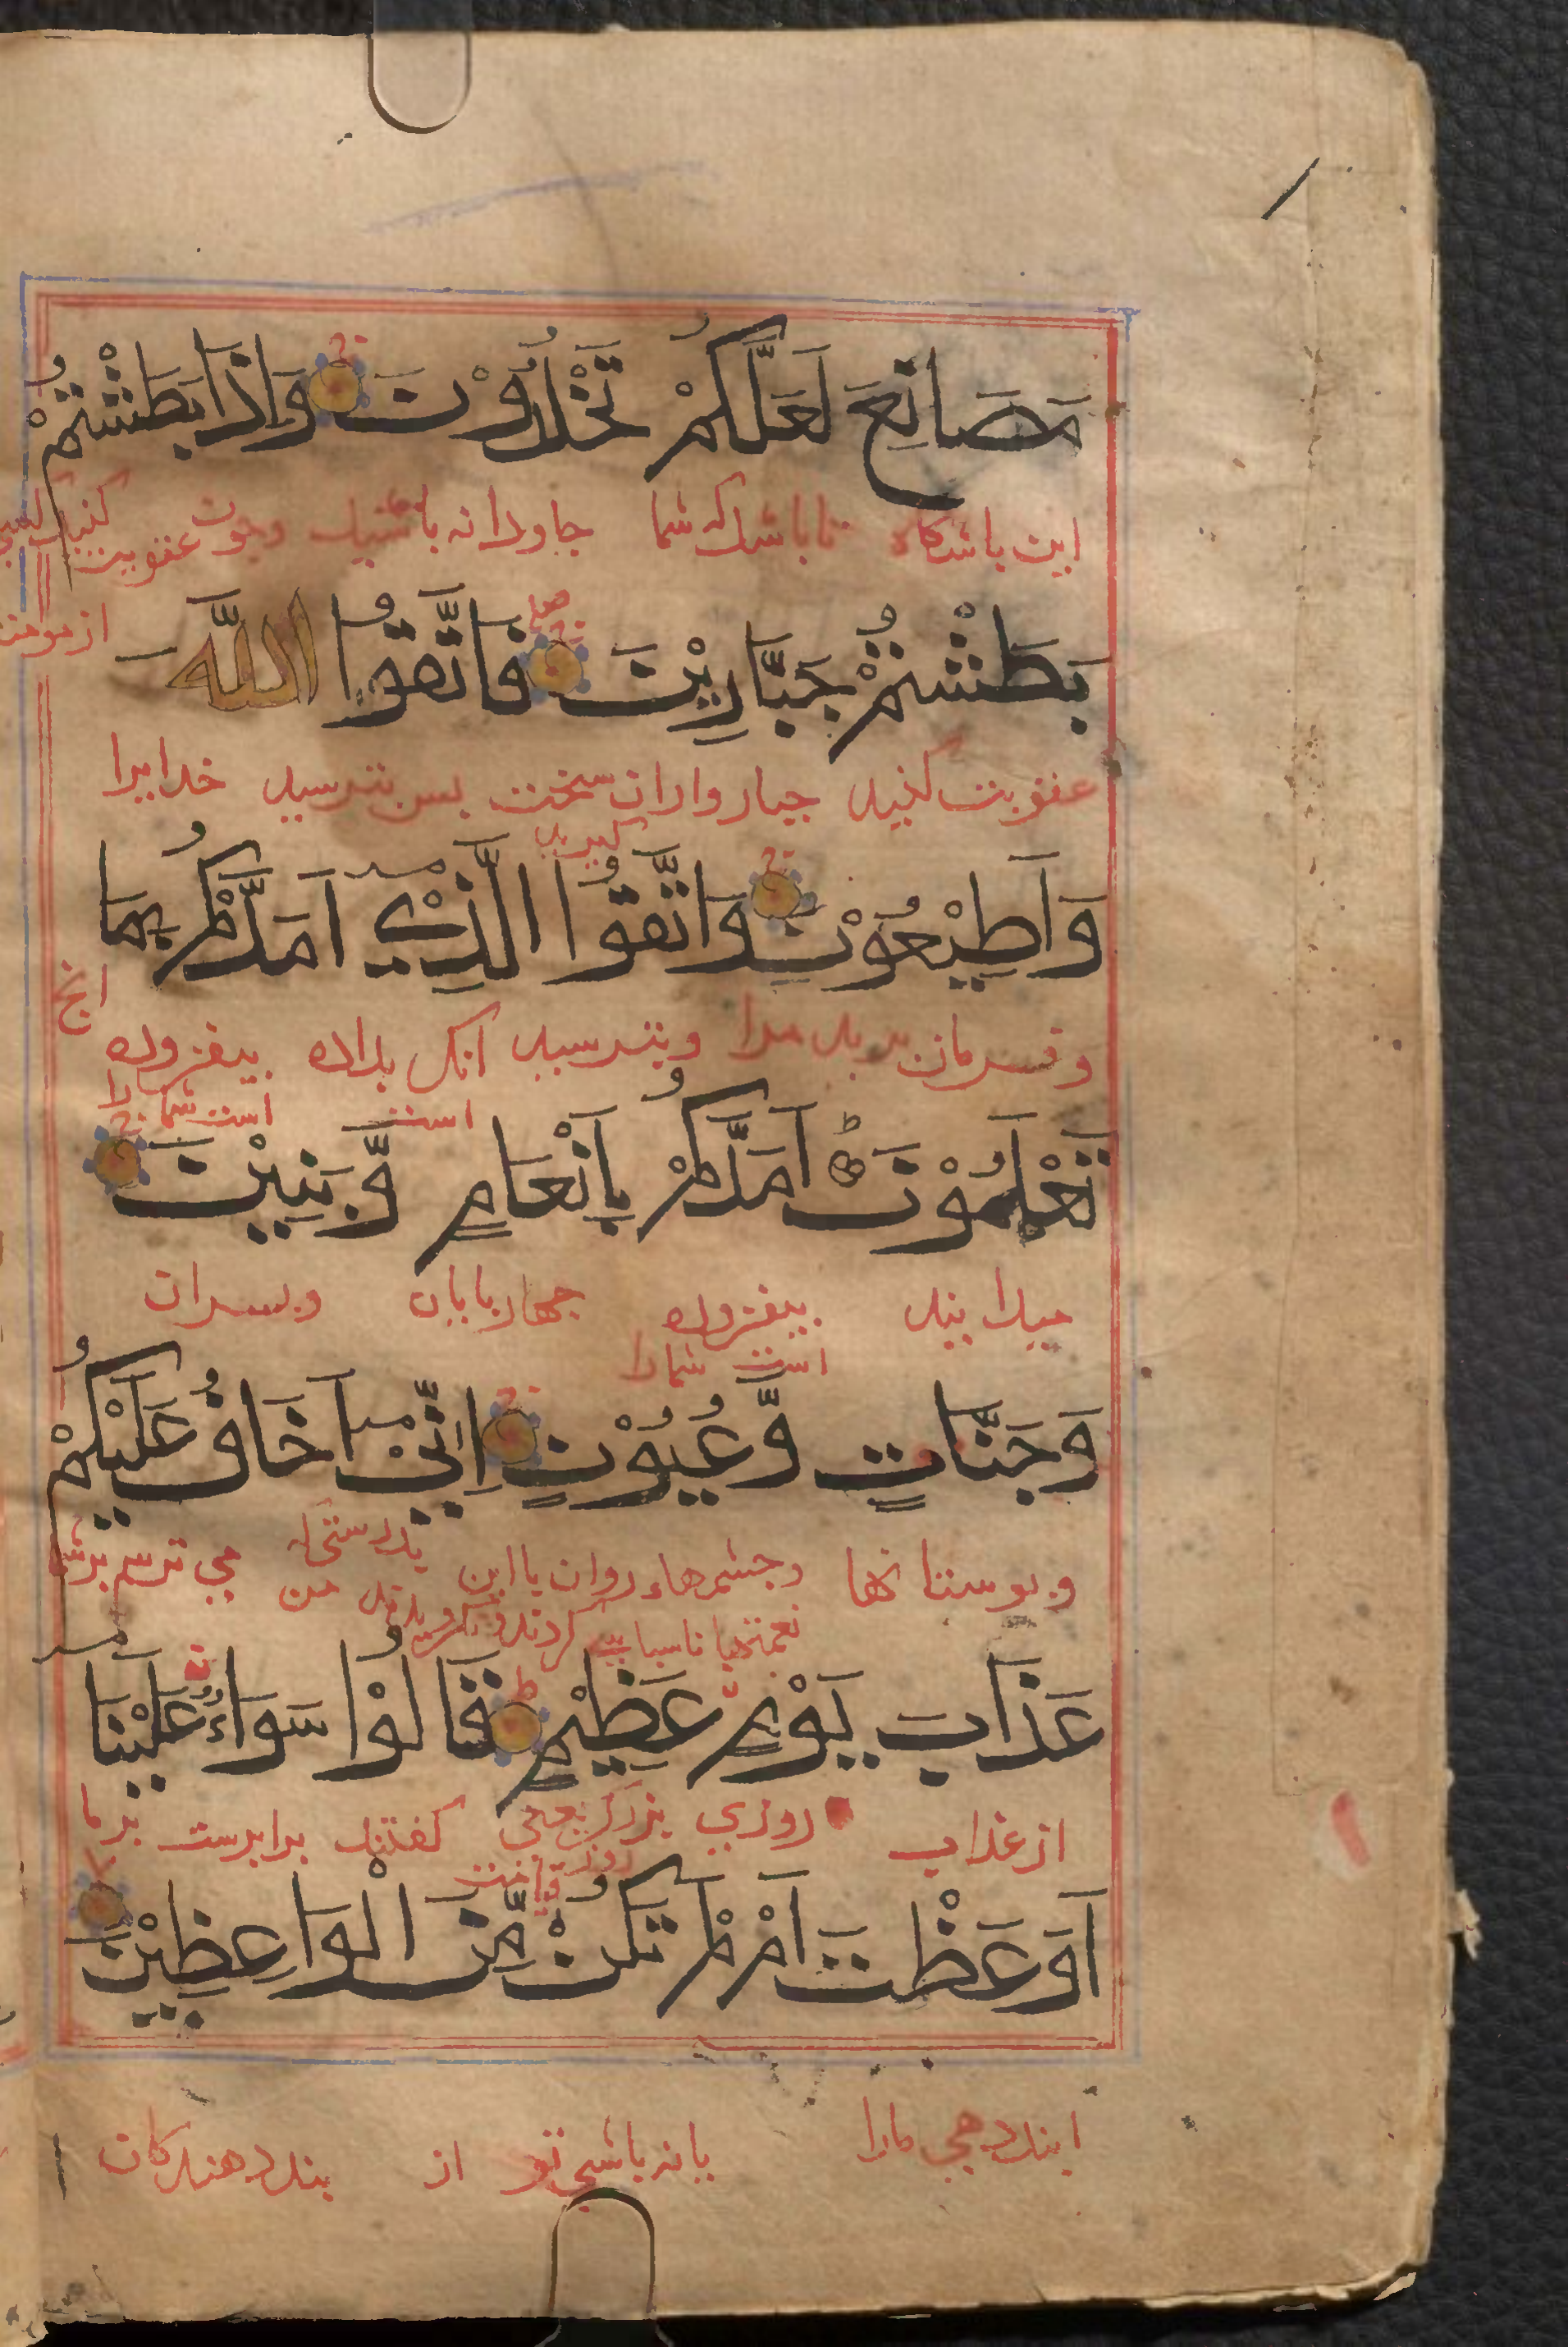 مَصَانِعَ لَعَلَّكُمْ تَخْلُدُوْنَ وَاِذَا بَطَشْتُمْ
این باشدکاه تا باشد که شما جاودانه باشید وچون عقوبت کنید
بَطَشْتُمْ جَبَّارِيْنَ فَاتَّقُوا اللّٰهَ
عقوبت کنید جبارواران سخت بس بترسید خدایرا
وَاَطِيْعُوْنِ وَاتَّقُوا الَّذِيْٓ اَمَدَّكُمْ بِمَا
وفرمان برید مرا وبترسید انک بداده بیفزوده
است است شمارا
تَعْلَمُوْنَ اَمَدَّكُمْ بِاَنْعَامٍ وَّبَنِيْنَ
میدانید بیفزوده جهاربایان وبسران
است شمارا
وَجَنَّاتٍ وَّعُيُوْنٍ اِنِّيْٓ اَخَافُ عَلَيْكُمْ
وبوستانها وجشمهاء روان بدرستی من می ترسم برشما
عَذَابَ يَوْمٍ عَظِيْمٍ قَالُوْا سَوَاءٌ عَلَيْنَآ
از عذاب روزی بزرک یعنی کفتند برابرست برما
روز قیامت
اَوَعَظْتَ اَمْ لَمْ تَكُنْ مِّنَ الْوَاعِظِيْنَ
ابند دهی مارا یا نه باشی تو از بند دهندکان